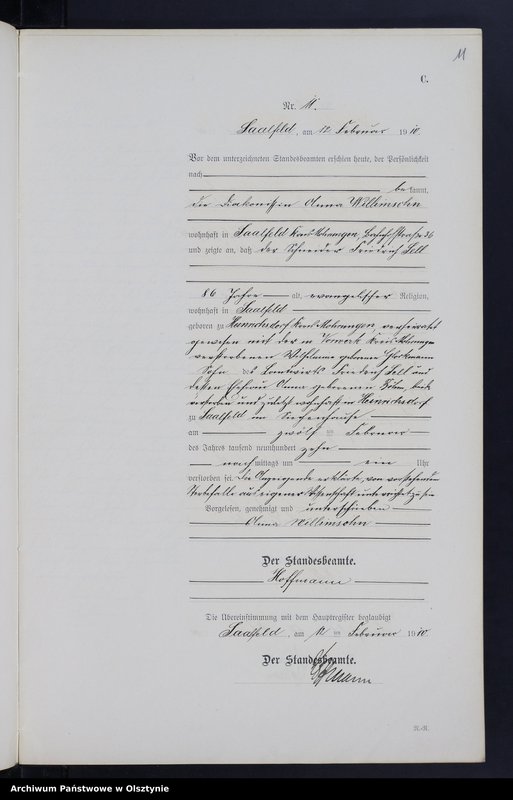 11
C.
Nr. 11.
Saalfeld, am 12 Februar 1910.
Vor dem unterzeichneten Standesbeamten erschien heute, der Persönlichkeit
nach
be kannt,
die Diakonissin Anna Willimsohn
wohnhaft in Saalfeld Kreis Mohrungen, Bahnhofstraße 36
und zeigte an, daß der Schneider Friedrich Lell
86 Jahre alt, evangelischer Religion,
wohnhaft in Saalfeld
geboren zu Hinnichsdorf Kreis Mohrungen, verheiratet
gewesen mit der in Vorwerk Kreis Mohrungen
verstorbenen Wilhelmine geborene
Sohn des Landwirts Friedrich Lell und
dessen Ehefrau Anna geborenen beide
verstorben und zuletzt wohnhaft in Hennichsdorf
zu Saalfeld im Siechenhause
am zwölf ten Februar
des Jahres tausend neunhundert zehn
nach mittags um ein Uhr
verstorben sei. Die Anzeigende erklärte, von vorstehendem
Sterbefalle aus eigener Wissenschaft unterrichtet zu sein
Vorgelesen, genehmigt und unterschrieben
Anna Willimsohn
Der Standesbeamte.
Hoffmann
Die Übereinstimmung mit dem Hauptregister beglaubigt
Saalfeld, am 12 ten Februar 1910.
Der Standesbeamte.
Hoffmann
Archiwum Państwowe w Olsztynie